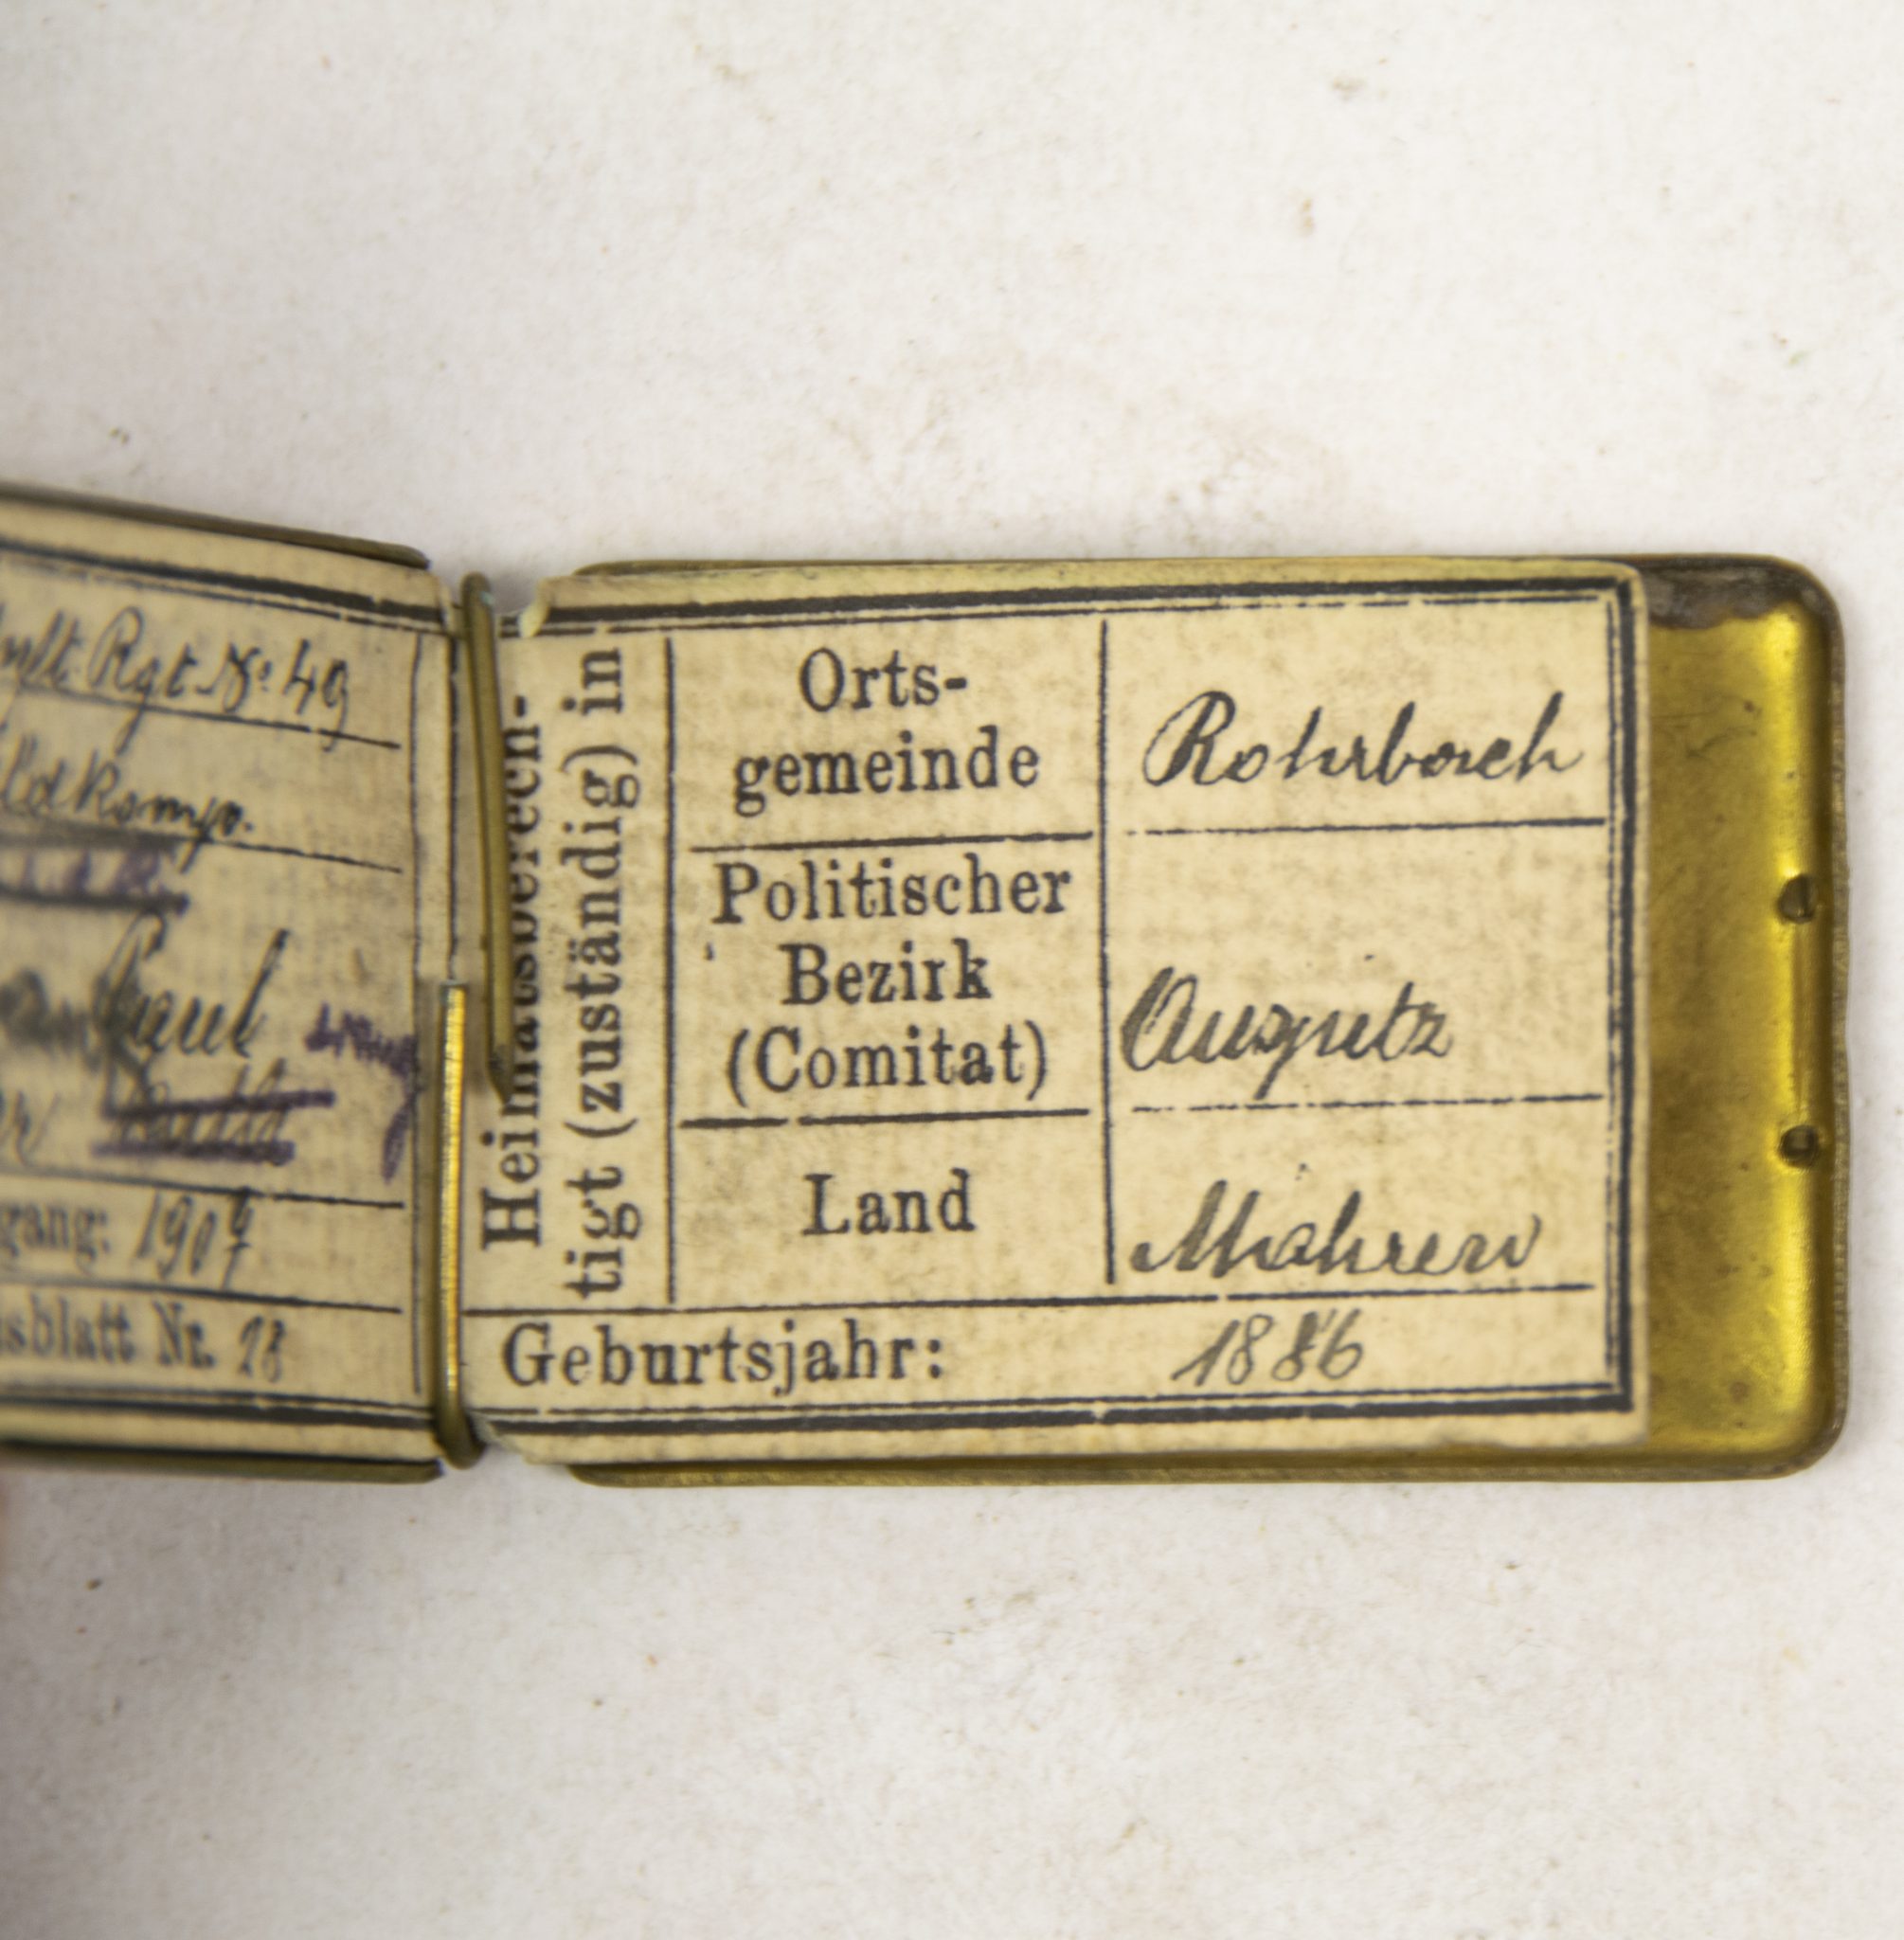 Inft. Rgt № 49
ldkomp.
Paul
gang: 1907
sblatt Nr. 13
Heimatsberech-
tigt (zuständig) in
Orts-
gemeinde
Rohrbach
Politischer
Bezirk
(Comitat)
Auspitz
Land
Mähren
Geburtsjahr: 1886